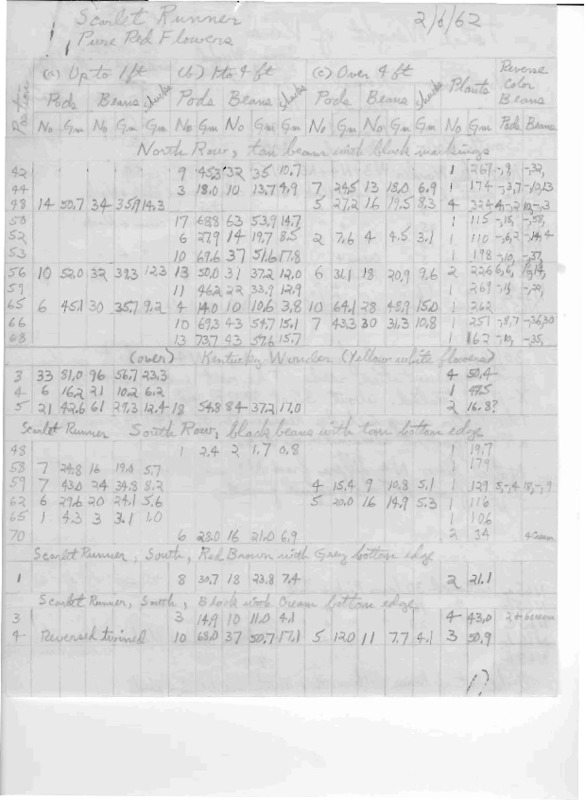 Scarlet Runner 2/6/62
Pure Red Flowers
(a) Up to 1 ft (b) 1 to 4 ft (c) Over 4 ft Plants Reverse Color Beans
Position Pods Beans chucks Pods Beans chucks Pods Beans chucks
No Gm No Gm Gm No Gm No Gm Gm No Gm No Gm Gm No Gm Pods Beans
North Row, tan beans with black markings
42 9 45.3 32 35 10.7 1 267 -,9, -,32,
44 3 18.0 10 13.7 4.9 7 24.5 13 18.0 6.9 1 174 -,3,7 -,10,13
48 14 50.7 34 35.9 14.3 5 27.2 16 19.5 8.3 4 324
50 17 68.8 63 53.9 14.7 1 115
52 6 27.9 14 19.7 8.5 2 7.6 4 4.5 3.1 1 110 -,6,2 -,14,4
53 10 67.6 37 51.6 17.8 1 198 -,10, -,37,
56 10 52.0 32 39.3 12.3 13 50.0 31 37.2 12.0 6 31.1 18 20.9 9.6 2 226
59 11 46.2 22 33.9 12.9 1 269
65 6 45.1 30 35.7 9.2 4 14.0 10 10.6 3.8 10 64.1 28 48.9 15.0 1 262
66 10 69.3 43 54.7 15.1 7 43.3 30 31.3 10.8 1 251 -,8,7 -,36,30
68 13 73.7 43 57.6 15.7 1 162 -,10, -,35,
(over) Kentucky Wonder (Yellow white flowers)
3 33 81.0 96 56.7 23.3 4 50.4
4 6 16.2 21 10.2 6.2 1 47.5
5 21 42.6 61 29.3 12.4 18 54.8 84 37.2 17.0 2 16.8?
Scarlet Runner South Row, black beans with tan bottom edge
48 1 2.4 2 1.7 0.8 1 19.7
58 7 24.8 16 19.0 5.7 1 179
59 7 43.0 24 34.8 8.2 4 15.4 9 10.8 5.1 1 129 5,-,4 18,-,9
62 6 29.6 20 24.1 5.6 5 20.0 16 14.9 5.3 1 116
65 1 4.3 3 3.1 1.0 1 106
70 6 28.0 16 21.0 6.9 2 34
Scarlet Runner, South, Red Brown with Grey bottom edge
1 8 30.7 18 23.8 7.4 2 21.1
Scarlet Runner, South, Black with Cream bottom edge
3 3 14.9 10 11.0 4.1 4 43.0
4 Reversed twined 10 68.0 37 50.7 17.1 5 12.0 11 7.7 4.1 3 50.9